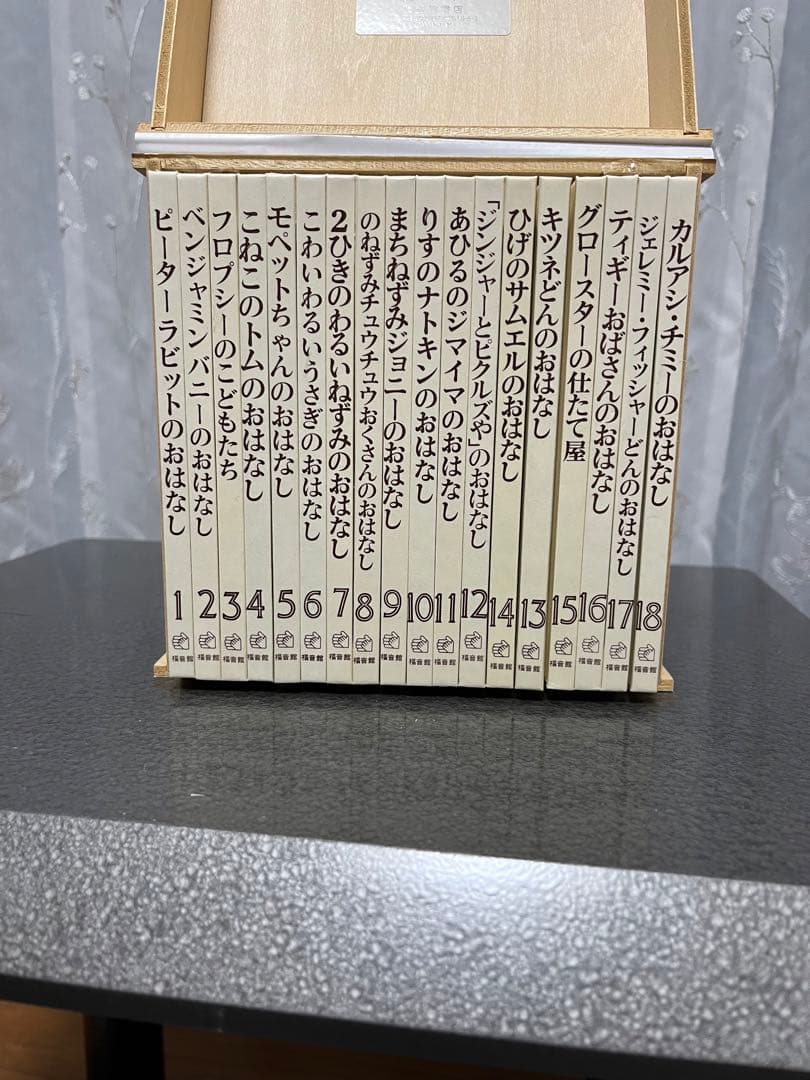 ピーターラビットのおはなし
1
福音館
ベンジャミン バニーのおはなし
2
福音館
フロプシーのこどもたち
3
福音館
こねこのトムのおはなし
4
福音館
モペットちゃんのおはなし
5
福音館
こわいわるいうさぎのおはなし
6
福音館
2ひきのわるいねずみのおはなし
7
福音館
のねずみチュウチュウおくさんのおはなし
8
福音館
まちねずみジョニーのおはなし
9
福音館
りすのナトキンのおはなし
10
福音館
あひるのジマイマのおはなし
11
福音館
「ジンジャーとピクルズや」のおはなし
12
福音館
ひげのサムエルのおはなし
14
福音館
キツネどんのおはなし
13
福音館
グロースターの仕たて屋
15
福音館
ティギーおばさんのおはなし
16
福音館
ジェレミー・フィッシャーどんのおはなし
17
福音館
カルアシ・チミーのおはなし
18
福音館